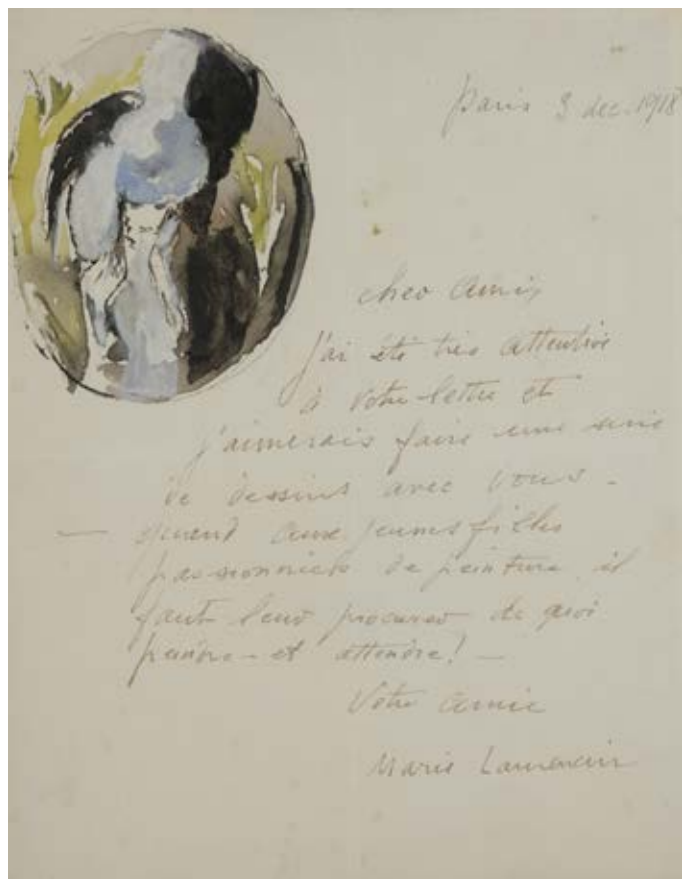 Paris 3 dec. 1918
cher Ami,
j'ai été très attentive
à votre lettre et
j'aimerais faire une série
de dessins avec vous -
— quand aux jeunes filles
passionnées de peinture il
faut leur procurer de quoi
peindre - et attendre! —
Votre amie
Marie Laurencin